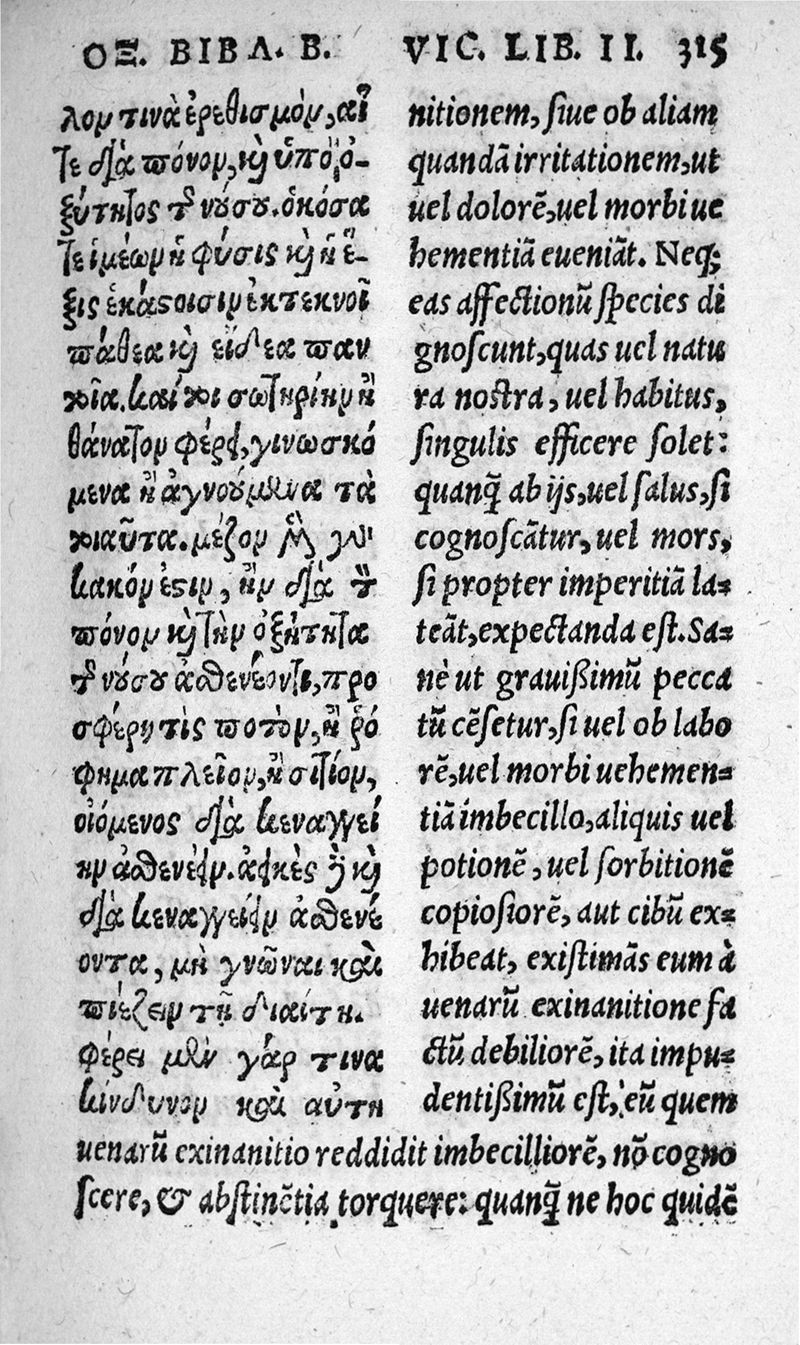 ΟΞ. ΒΙΒΛ. Β. VIC. LIB. II. 315
λον τινὰ ἐρεθισμὸν, αἵ
τε διὰ πόνον, κὴ ὑπὸ ὀ-
ξύτητος τ νούσου. ὁκόσα
τε ἡμέων ἡ φύσις κὴ ἡ ἕ-
ξις ἑκάστοισιν ἐκτεκνοῖ
πάθεα κὴ εἴδεα παν
τοῖα. καίτοι σωτηρίην ἢ
θάνατον φέρει, γινωσκό
μενα ἢ ἀγνοούμενα τὰ
τοιαῦτα. μέζον μὲν γὰρ
κακόν ἐστιν, ἢν διὰ τ
πόνον κὴ τὴν ὀξύτητα
τ νούσου ἀσθενέοντι, προ
σφέρῃ τὶς ποτὸν, ἢ ῥό
φημα πλεῖον, ἢ σιτίον,
οἰόμενος διὰ κεναγγεί
ην ἀσθενέειν. ἀεικὲς δὲ κὴ
διὰ κεναγγείην ἀσθενέ
οντα, μὴ γνῶναι καὶ
πιέζειν τῇ διαίτῃ.
φέρει μὲν γάρ τινα
κίνδυνον καὶ αὕτη
nitionem, siue ob aliam
quandã irritationem, ut
uel dolorẽ, uel morbi ue
hementiã eueniãt. Neq;
eas affectionũ species di
gnoscunt, quas uel natu
ra nostra, uel habitus,
singulis efficere solet:
quanq̃ ab ijs, uel salus, si
cognoscãtur, uel mors,
si propter imperitiã la-
teãt, expectanda est. Sa-
nè ut grauißimũ pecca
tũ cẽsetur, si uel ob labo
rẽ, uel morbi uehemen-
tiã imbecillo, aliquis uel
potionẽ, uel sorbitionẽ
copiosiorẽ, aut cibũ ex-
hibeat, existimãs eum à
uenarũ exinanitione fa
ctũ debiliorẽ, ita impu-
dentißimũ est, eũ quem
uenarũ exinanitio reddidit imbecilliorẽ, nõ cogno
scere, & abstinẽtia torquere: quanq̃ ne hoc quidẽ